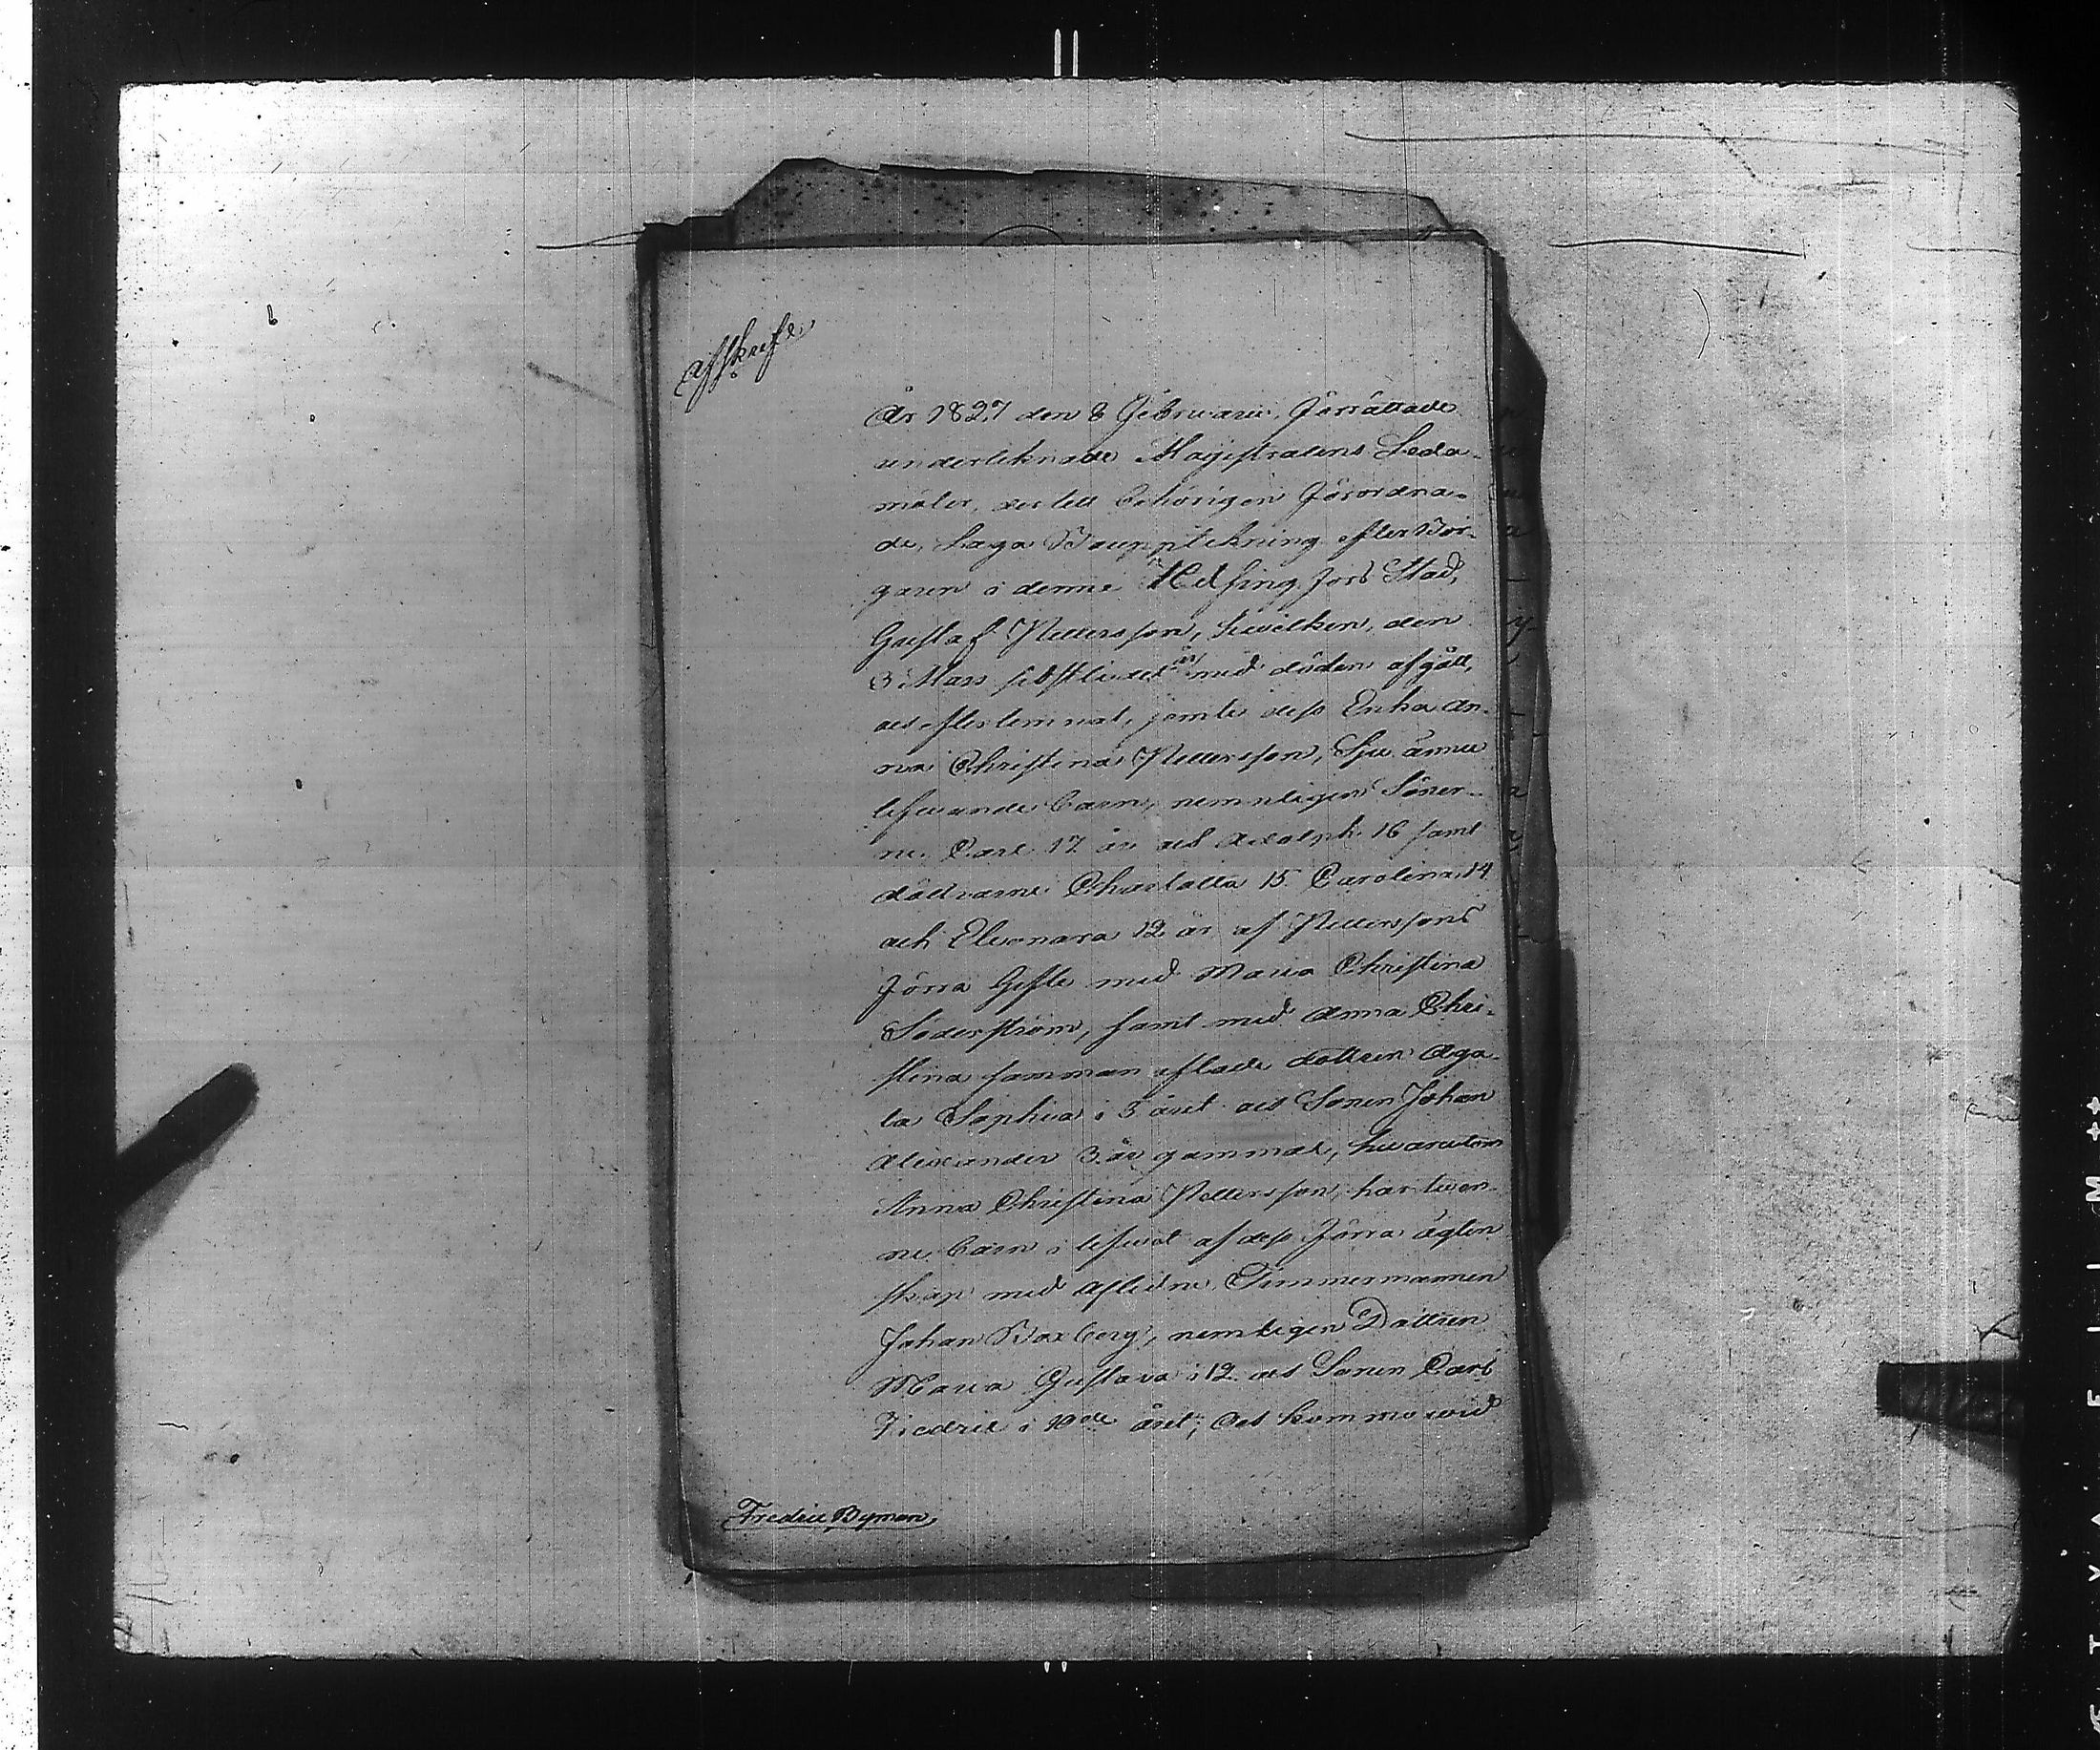 Afskrift
År 1827 den 8 Februarii, förrättade
undertecknade Magistratens Leda-
möter, der till behörigen förordna-
de, Laga Bouppteckning efter Bor-
garen i denne Helsingfors Stad,
Gustaf Pettersson, hwilken, den
3 Mars sidstledet år med döden afgått,
och efterlemnat, jemte dess Enka An-
na Christina Pettersson, Sju ännu
lefwande barn, nemnligen Söner-
ne Carl 17 år och Adolph 16 samt
döttrarne Charlotta 15 Carolina 14
och Eleonora 12 år af Petterssons
förra Gifte med Maria Christina
Söderström, samt med Anna Chri-
stina samman aflade dottren Aga-
ta Sophia i 5 året och Sonen Johan
Alexander 3 år gammal, hwarutom
Anna Christina Pettersson, har twen-
ne barn i lifwet af dess förra ägten
skap med aflidne Timmermannen
Johan Boxberg, nemligen Dottren
Maria Gustava i 12 och Sonen Carl
Fredric i 10de året; Och kommo wid
Fredric Byman,